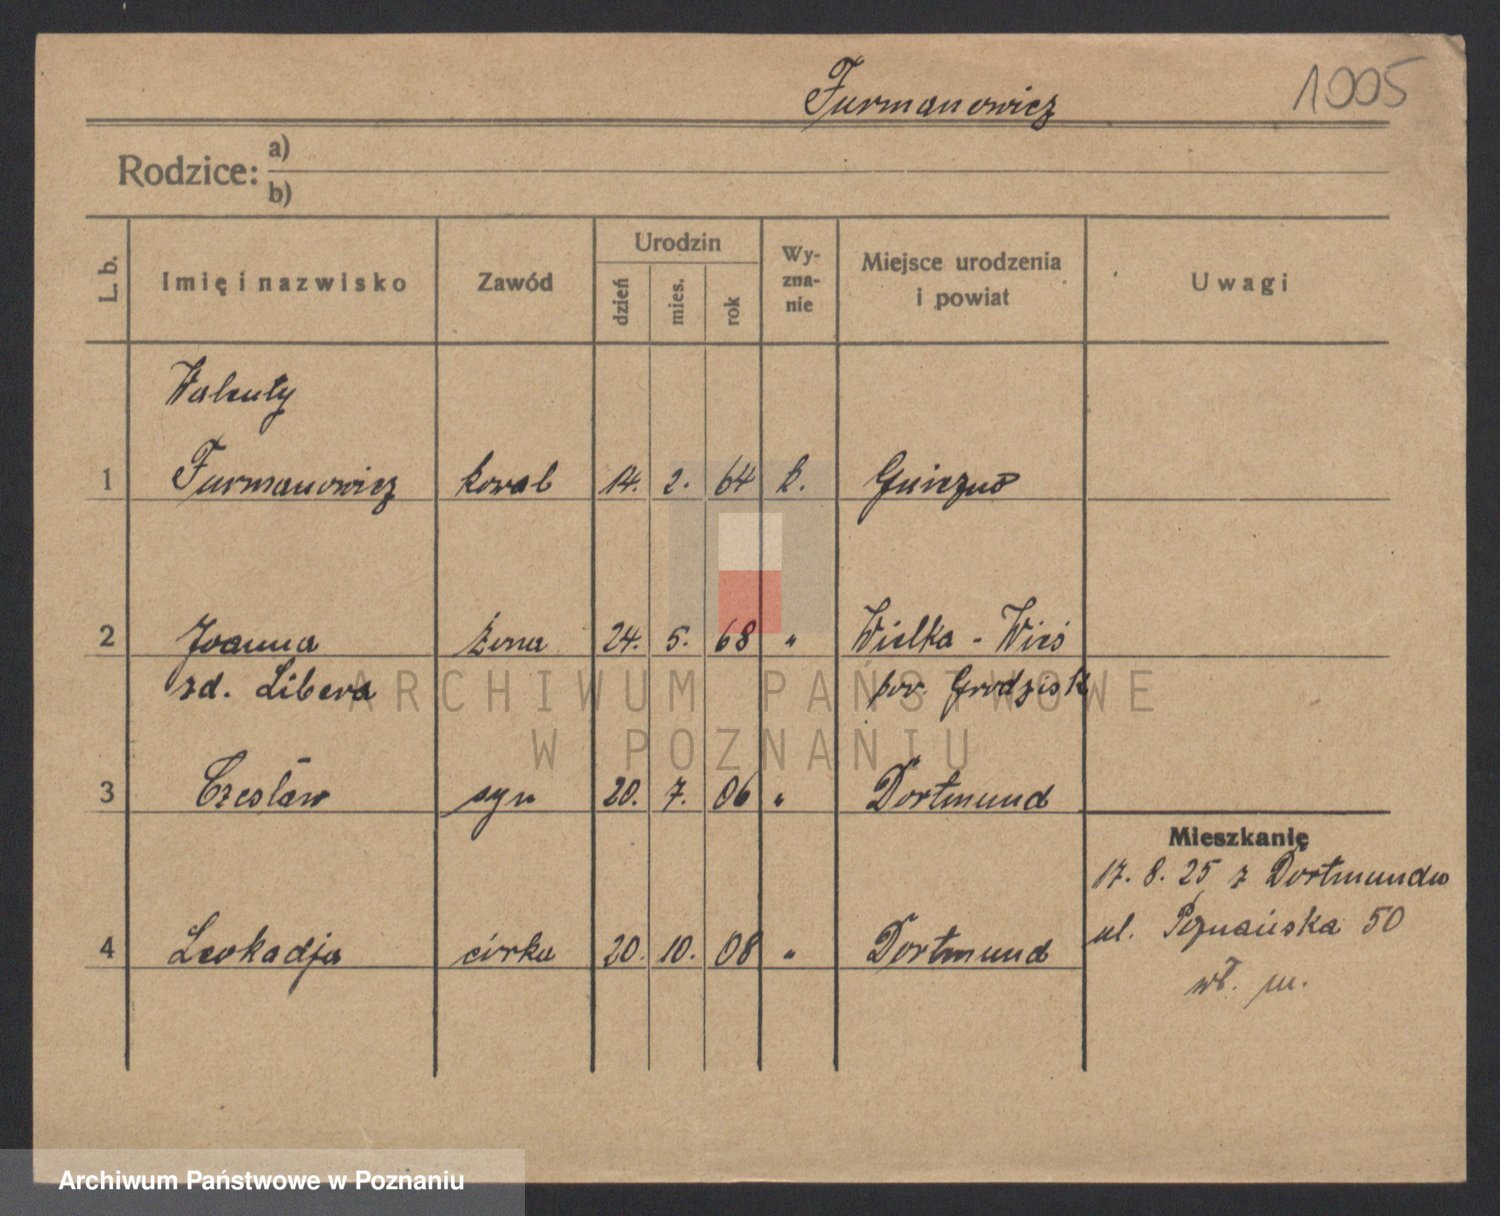 Furmanowicz
1005
Rodzice: a)
b)
L. b.
Imię i nazwisko
Zawód
Urodzin
dzień
mies.
rok
Wy-
zna-
nie
Miejsce urodzenia
i powiat
Uwagi
Walenty
1 Furmanowicz kowal 14. 2. 64 k. Gniezno
2 Joanna żona 24. 5. 68 " Wielka - Wieś
zd. Libera pow. Grodzisk
3 Czesław syn 20. 7. 06 " Dortmund
Mieszkanię
17. 8. 25 z Dortmundu
ul. Poznańska 50
4 Leokadja córka 20. 10. 08 " Dortmund
wł. m.
ARCHIWUM PAŃSTWOWE
W POZNANIU
Archiwum Państwowe w Poznaniu